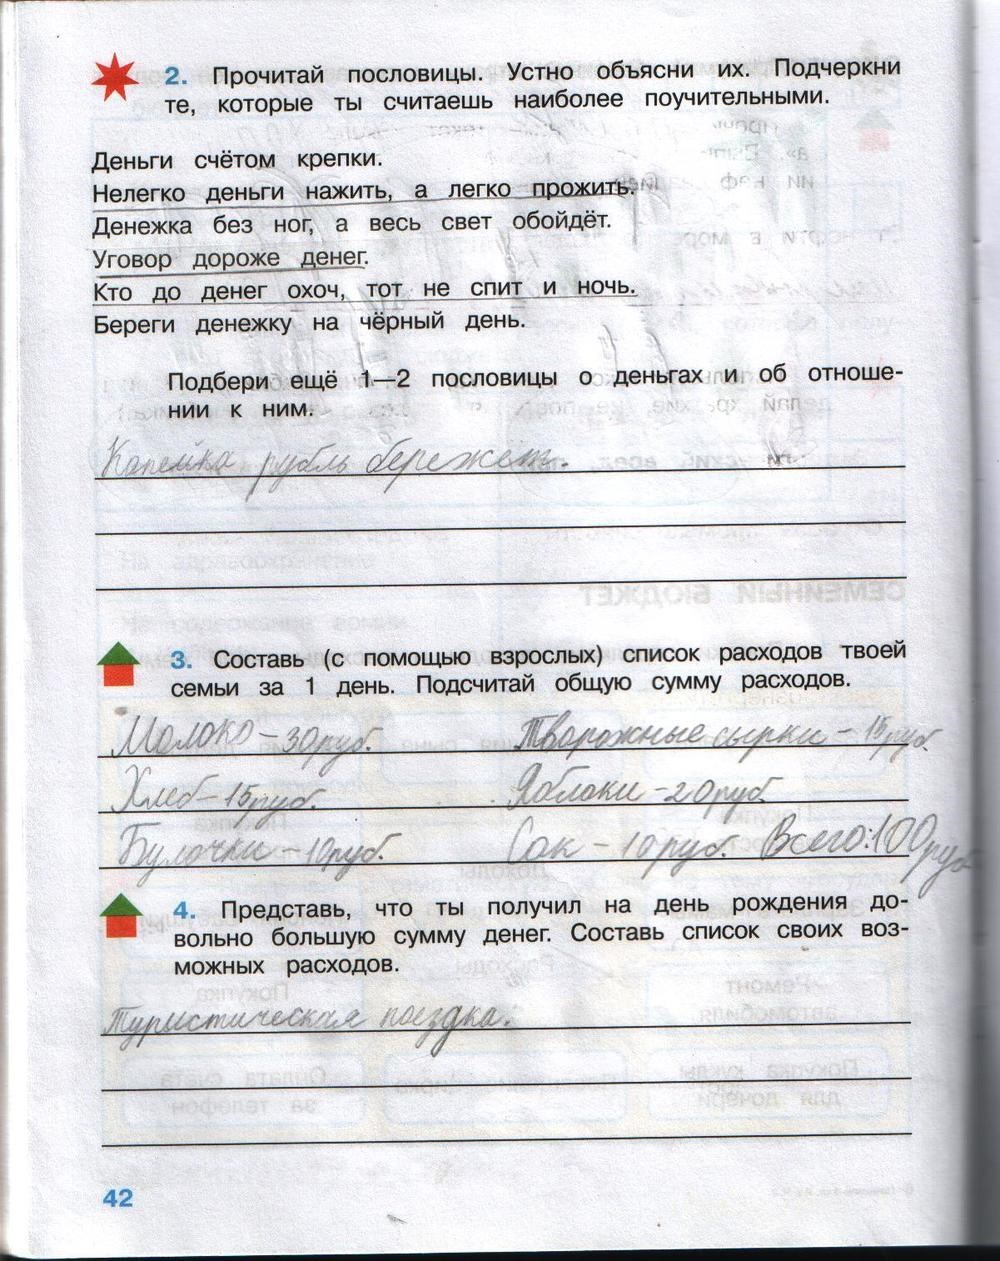 2. Прочитай пословицы. Устно объясни их. Подчеркни
те, которые ты считаешь наиболее поучительными.
Деньги счётом крепки.
Нелегко деньги нажить, а легко прожить.
Денежка без ног, а весь свет обойдёт.
Уговор дороже денег.
Кто до денег охоч, тот не спит и ночь.
Береги денежку на чёрный день.
Подбери ещё 1—2 пословицы о деньгах и об отноше-
нии к ним.
Копейка рубль бережет.
3. Составь (с помощью взрослых) список расходов твоей
семьи за 1 день. Подсчитай общую сумму расходов.
Молоко – 30руб. Творожные сырки – 15руб.
Хлеб – 15руб. Яблоки – 20руб.
Булочки – 10руб. Сок – 10руб. Всего: 100руб.
4. Представь, что ты получил на день рождения до-
вольно большую сумму денег. Составь список своих воз-
можных расходов.
Туристическая поездка.
42